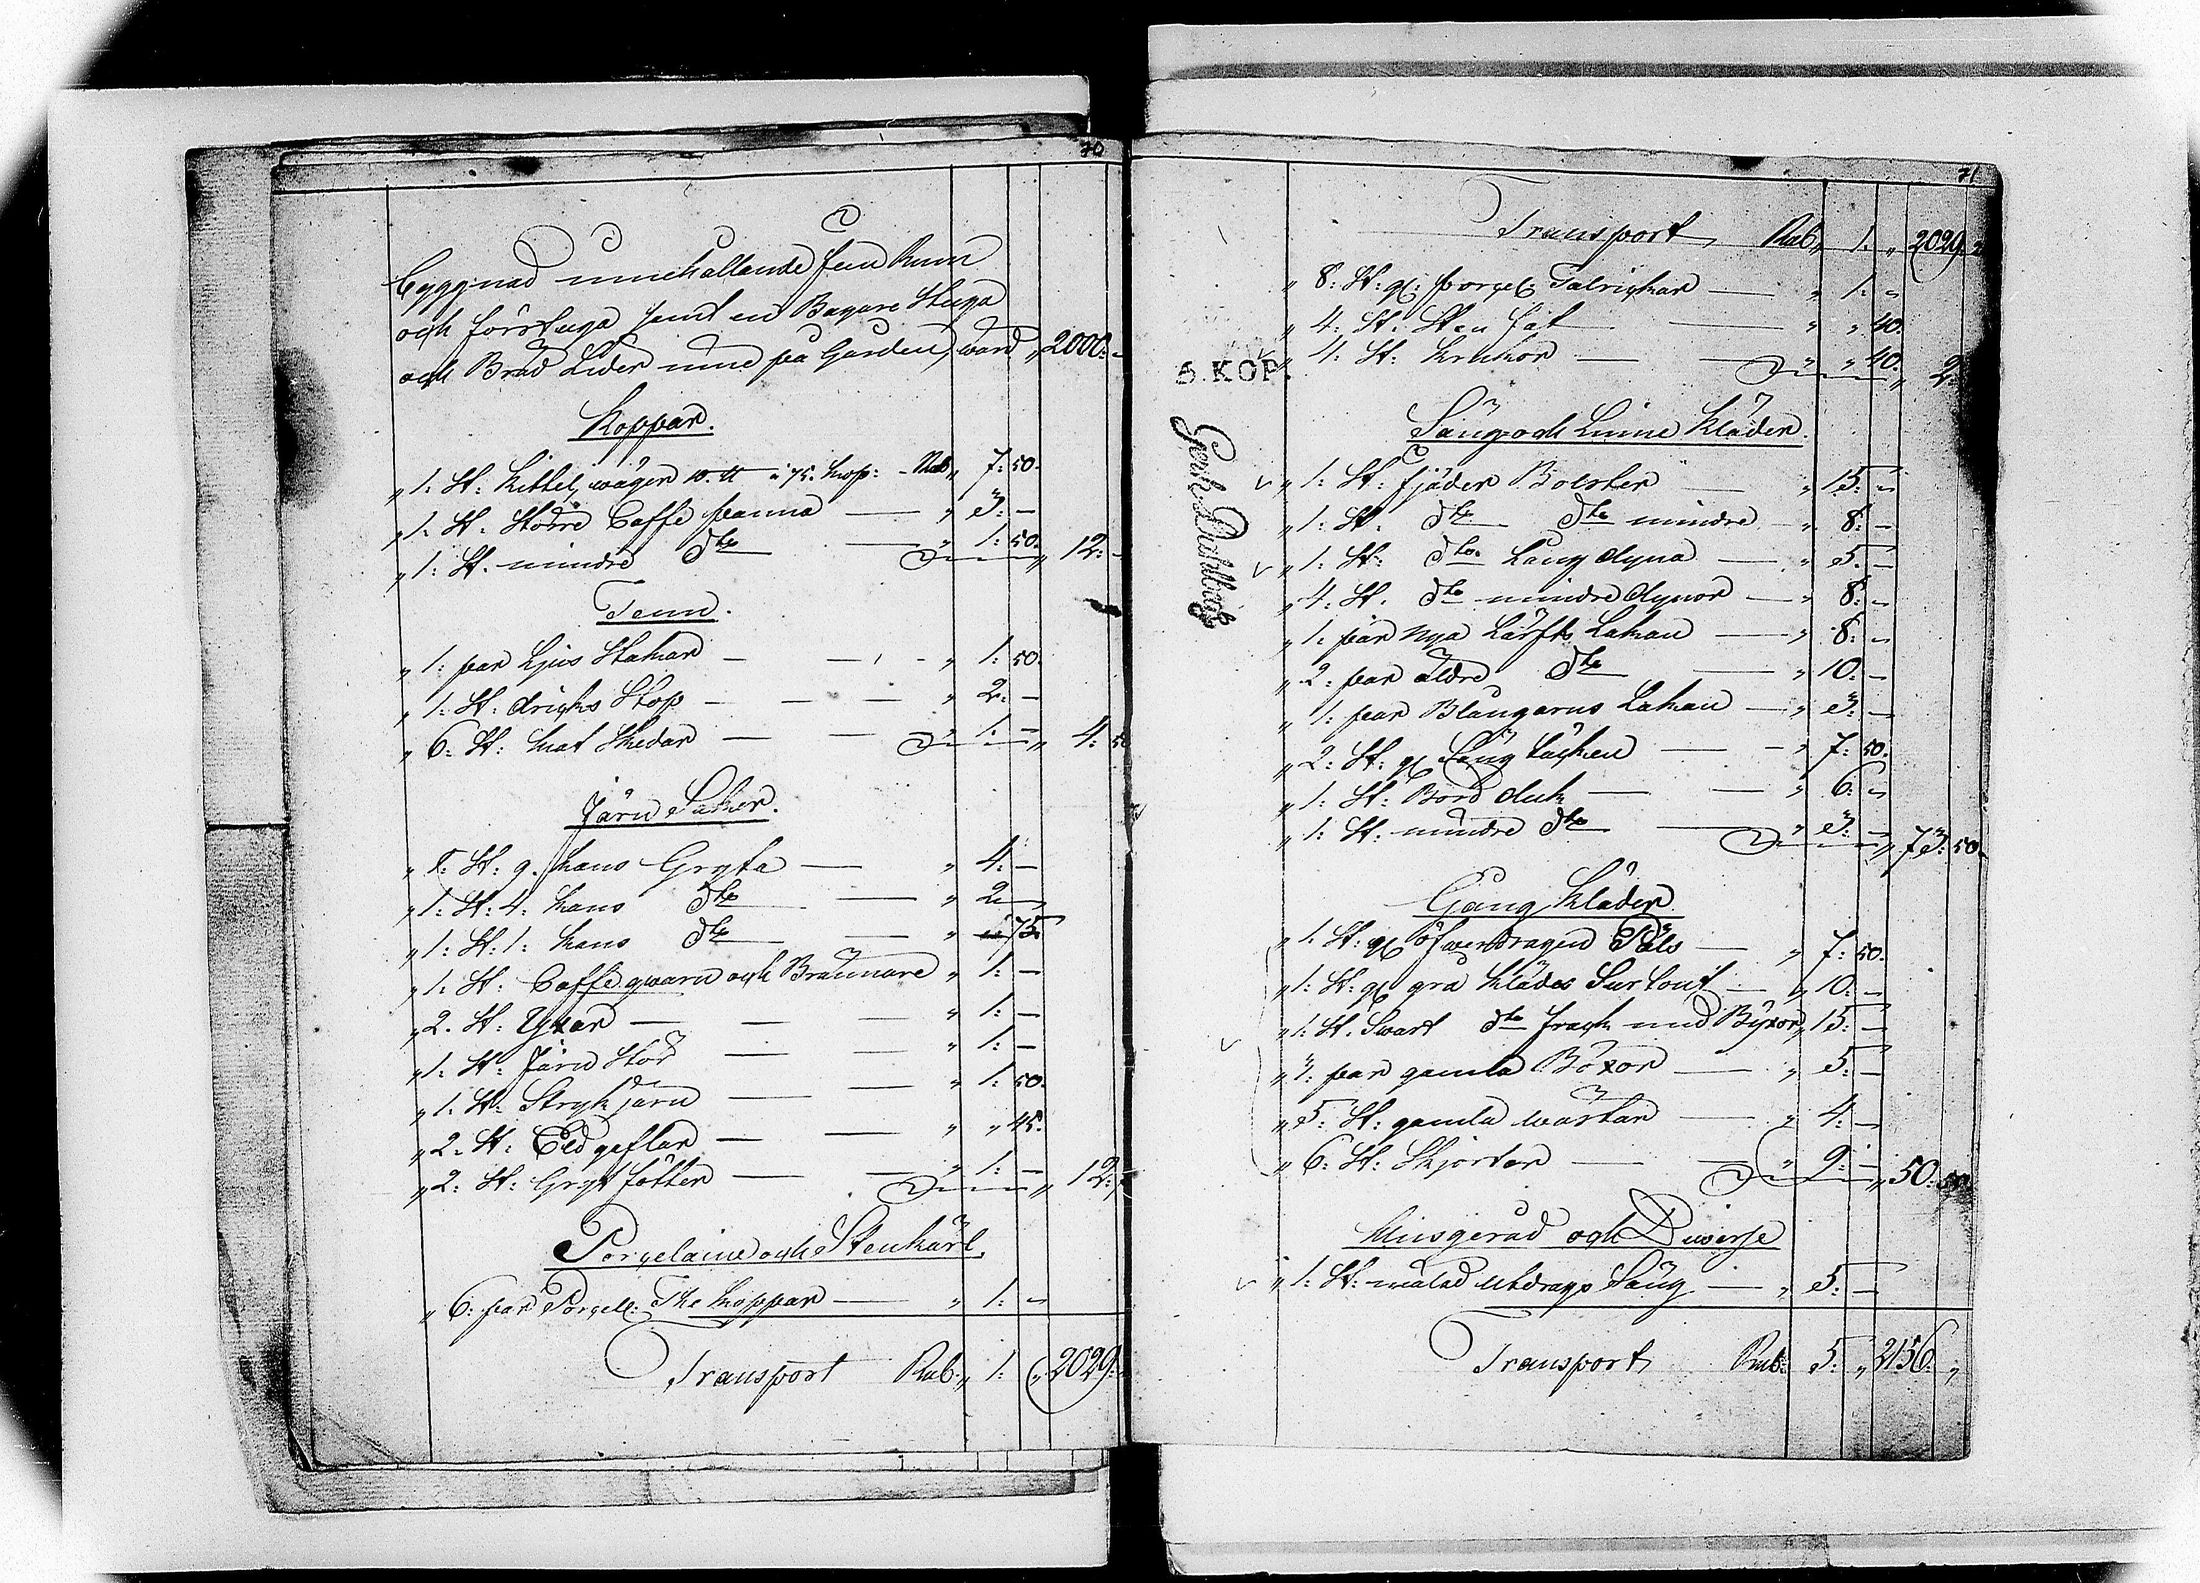 70
byggnad innehållande fem Rum
och förstuga jemt en Bagare Stuga
och Bräd Lider inne på Gården, wärd „ 2000: -
Koppar.
„ 1: St: Kittel, wäger 10. ℔ à 75. kop: - Rub „ 7: 50.
„ 1: St. Större Caffe panna — „ 3: -
„ 1: St. mindre dto — „ 1: 50. „ 12: -
Tenn.
„ 1: par Ljus Stakar — „ 1: 50.
„ 1: St: dricks Stop — „ 2: -
„ 6: St: mat Skedar — „ 1: - „ 4: 50
Järn Saker.
„ 1: St: 9. kans Gryta — „ 4: -
„ 1: St: 4: kans dto — „ 2 -
„ 1: St: 1: kans dto — „ 75.
„ 1: St: Caffe qwarn och Brännare „ 1: -
„ 2. St: Yxar — „ 1: -
„ 1: St: Järn Stör — „ 1: -
„ 1: St: Stryk järn — „ 1: 50.
„ 2: St: Eld gaflar — „ „ 45.
„ 2: St: Gryt fötter — „ 1: - „ 12:
Porcelaine och Stenkärl.
„ 6: par Porcell: The koppar — „ 1: -
Transport Rub: „ 1: „ 2029:
71
Transport, Rub „ 1: „ 2029: 2
„ 8: St: gl: porcel: Talrickar — „ 1: -
„ 4: St: Sten fat — „ „ 40.
„ 4: St: krukor — „ „ 40. „ 2
5. KOP.
Säng och Linne Kläder.
„ 1: St: fjäder Bolster — „ 15: -
„ 1: St. dto dto mindre „ 8: -
„ 1: St: dto Lång dyna — „ 5: -
„ 4: St. dto mindre dynor — „ 8: -
„ 1: par nya Lärfts Lakan — „ 8: -
„ 2: par äldre dto — „ 10: -
„ 1: par Blångarns Lakan — „ 3: -
„ 2: St: gl Säng täcken — „ 7: 50.
„ 1: St: Bord duk — „ 6: -
„ 1: St. mindre dto — „ 3: - „ 73: 50.
Gång Kläder
„ 1: St: gl öfwerdragen Päls — „ 7: 50.
„ 1: St: gl grå Klädes Surtout — „ 10: -
„ 1: St. Swart dto frack med Byxor „ 15: -
„ 1: par gamla Böxor — „ 5: -
„ 5: St: gamla wästar — „ 4: -
„ 6: St: Skjortor — „ 9: - „ 50: 50.
Husgeråd och Diverse
„ 1: St: målad Utdrags Säng — „ 5: -
Transport, Rub: 5: „ 2156: „